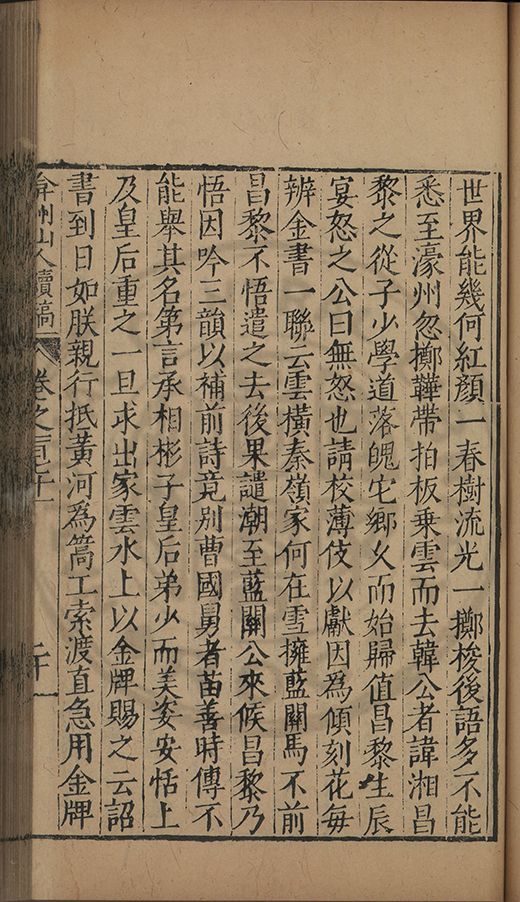 世界能幾何紅顏一春樹流光一擲梭後語多不能
悉至濠州忽擲鞾帶拍板乗雲而去韓公者諱湘昌
黎之從子少學道落魄宅鄉久而始歸值昌黎生辰
宴怒之公曰無怒也請校薄伎以獻因為傾刻花每
辨金書一聯云雲橫秦嶺家何在雪擁藍關馬不前
昌黎不悟遣之去後果譴潮至藍關公來候昌黎乃
悟因吟三韻以補前詩竟别曹國舅者苗善時傳不
能舉其名第言丞相彬子皇后弟少而美姿安恬上
及皇后重之一旦求出家雲水上以金牌賜之云詔
書到日如朕親行抵黃河為篙工索渡直急用金牌
弇州山人續稿 卷之一百七十一 二十一